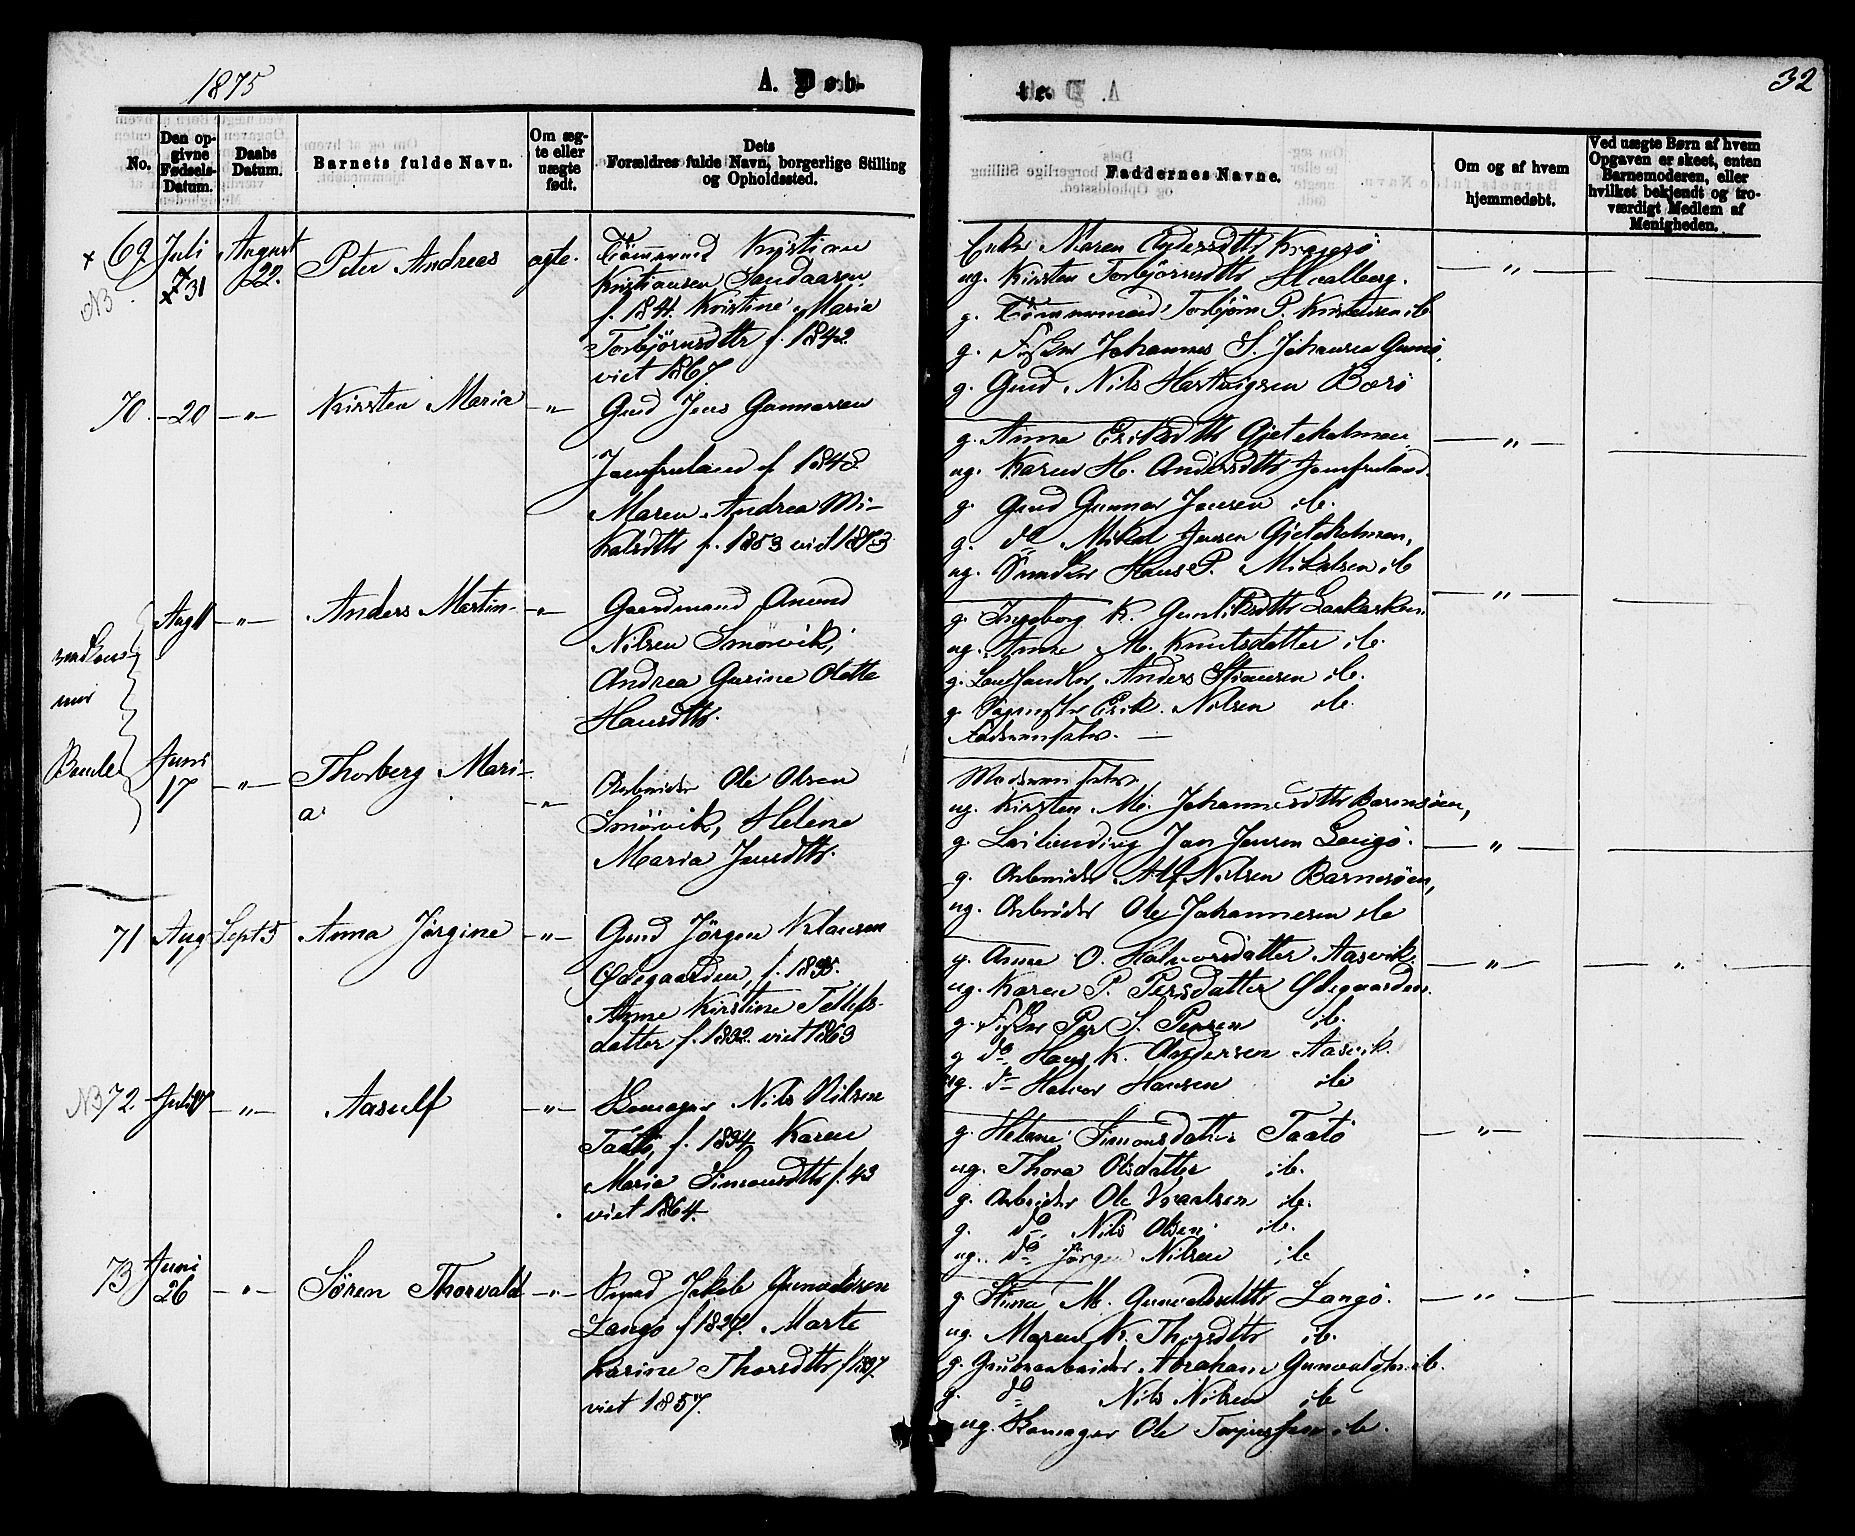 1875
A. Døb-
te.
32
No.
Den op-
givne
Fødsels-
Datum.
Daabs
Datum.
Barnets fulde Navn.
Om æg-
te eller
uægte
født.
Dets
Forældres fulde Navn, borgerlige Stilling
og Opholdssted.
Faddernes Navne.
Om og af hvem
hjemmedøbt.
Ved uægte Børn af hvem
Opgaven er skeet, enten
Barnemoderen, eller
hvilket bekjendt og tro-
værdigt Medlem af
Menigheden.
69
Juli
31
August
22.
Peter Andreas
ægte.
Tømmermd Kristian
Kristiansen Sandaasen
f. 1841. Kristine Maria
Torbjørnsdttr f. 1842
viet 1867
Enke Maren Andersdttr Kragerø
ug. Kirsten Torbjørnsdttr
g. Tømmermand Torbjørn P. Kristensen ib
g. Fisker Johannes S. Johansen
g. Gmd Nils Hartvigsen Barø
70.
-20
-"-
Kirsten Maria
-"-
Gmd Jens Gunnarsen
Jomfruland f. 1848
Maren Andrea Mi-
kalsdttr f. 1853 viet 1873
g. Anne Eriksdttr Gjeteholmen
ug. Karen H. Andersdttr Jomfruland.
g. Gmd Gunnar Jensen ib.
g. do Mikal Jensen Gjeteholmen,
ug. Hans P. Mikalsen ib
-"-
Aug 11
-"-
Anders Martin
-"-
Gaardmand Anund
Nilsen Smørvik,
Andrea Gurine Olette
Hansdttr.
g. Ingeborg K. Gunliksdttr
ug. Anne M. Knutsdatter ib.
g. Landhandler Anders Stiansen ib.
g. Erik Nilsen ib.
-"-
Bamle
Juni
17
-"-
Thorberg Mari-
a.
-"-
Arbeider Ole Olsen
Smørvik, Helene
Maria Jensdttr.
ug. Kirsten M. Johannesdttr
g. Jan Jensen Langø.
g. Arbeider Alf Nilsen
ug. Arbeider Ole Johannesen ib
-"-
71
Aug
Sept 5
Anna Jørgine
-"-
Gmd Jørgen Klausen
Ødegaarden, f. 1835.
Anne Kirstine Tellefs-
datter f. 1832. viet 1863
g. Anne O. Halvorsdatter Aasvik
ug. Karen P. Persdatter Ødegaarden
g. Fisker Per S. Persen ib.
g do Hans K. Andersen Aasvik.
ug. do Halvor Hansen ib
-"-
NB 72.
Juli 17
-"-
Aasulf
-"-
Nils Nilsen
Taatø, f. 1834 Karen
Maria Simonsdttr f. 43
viet 1864.
g. Helene Simonsdatter Taatø
ug. Thora Olsdatter ib.
g. Arbeider Ole Vraalsen ib.
g. do Nils Olsen ib.
ug. do Jørgen Nilsen ib
-"-
73
Juni
26
-"-
Søren Thorvald
-"-
Jakob Gunvaldsen
Langø f 1827. Marte
Karine Thorsdttr f 1837.
viet 1857.
g Stina M. Gunvaldsdttr Langø.
ug. Maren K. Thorsdttr ib.
g. Grubearbeider Abraham Gunvaldsen ib.
g. do Nils Nilsen ib
ug. Ole ib.
-"-